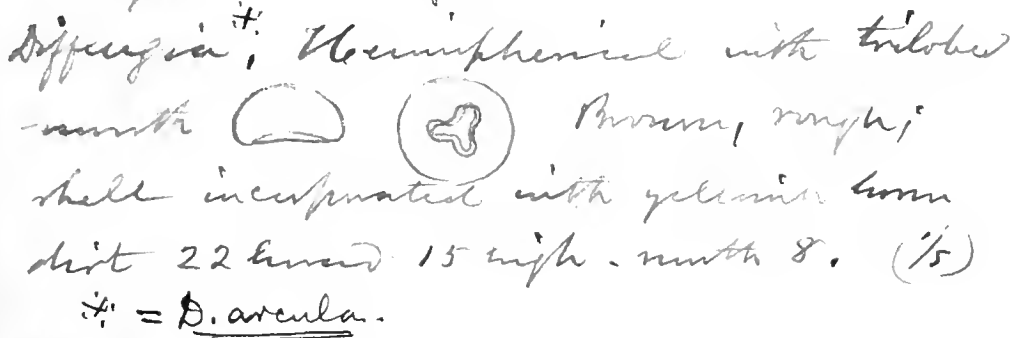 Difflugia※, Hemispherical with trilobed
mouth Brown, rough;
shell incorporated with yellowish brown
dirt 22 broad 15 high - mouth 8. (1/5)
※ = D. arcula.